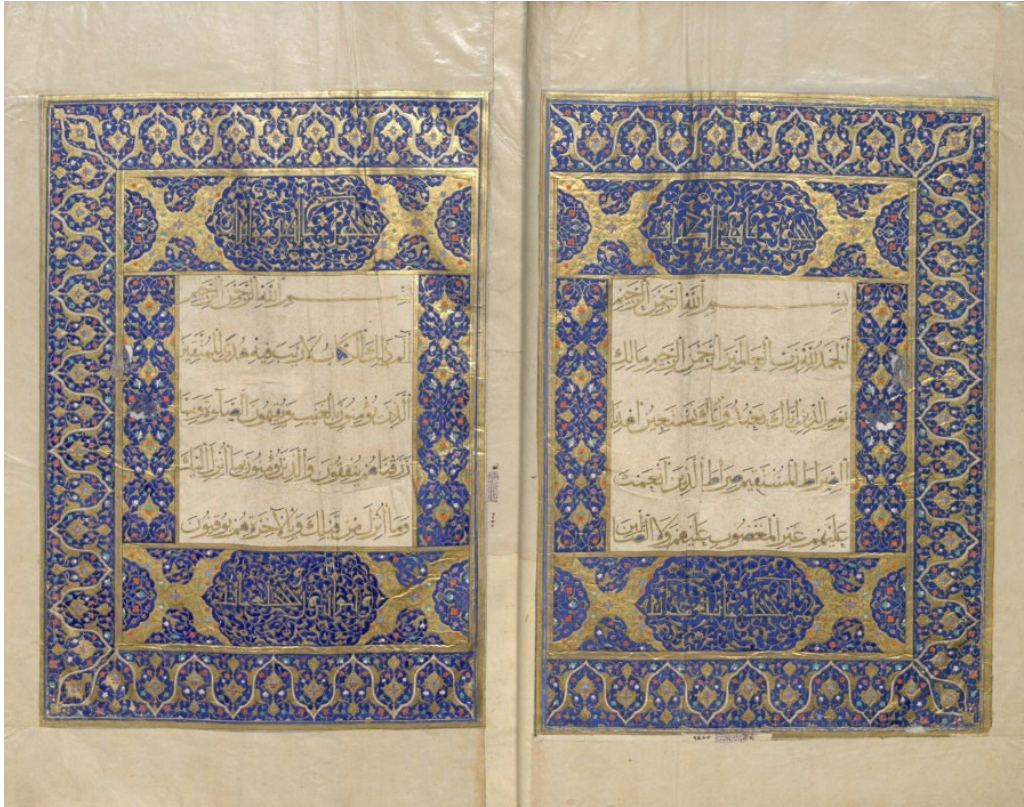 بسم الله الرحمن الرحيم
الحمد لله رب العالمين الرحمن الرحيم مالك
يوم الدين اياك نعبد واياك نستعين اهدنا
الصراط المستقيم صراط الذين انعمت
عليهم غير المغضوب عليهم ولا الضالين
بسم الله الرحمن الرحيم
الم ذلك الكتاب لا ريب فيه هدى للمتقين
الذين يؤمنون بالغيب ويقيمون الصلوة ومما
رزقناهم ينفقون والذين يؤمنون بما انزل اليك
وما انزل من قبلك وبالآخرة هم يوقنون